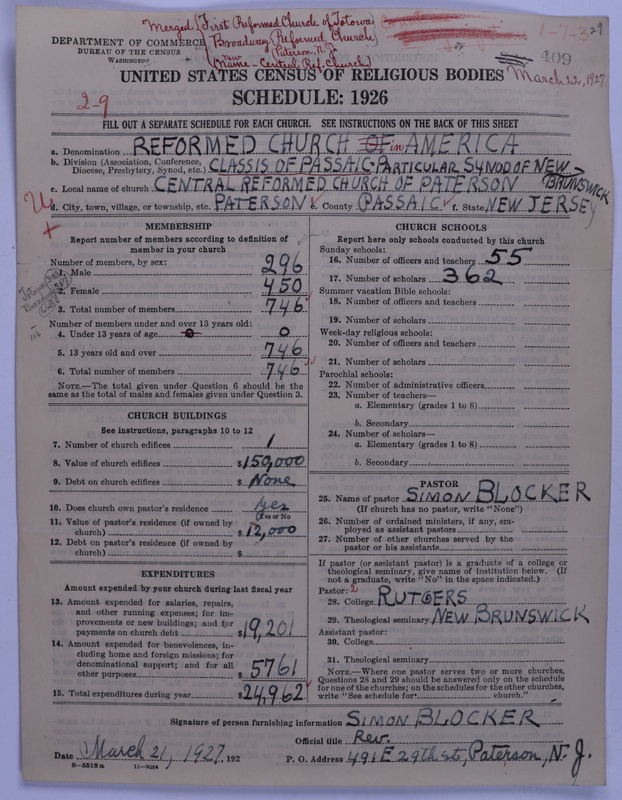 Merged (First Reformed Church of Totowa
Broadway Reformed Church)
(Paterson N.J.
New
Name - Central Ref. Church)
1-7-3
29
409
March 22, 1927
DEPARTMENT OF COMMERCE
BUREAU OF THE CENSUS
WASHINGTON
UNITED STATES CENSUS OF RELIGIOUS BODIES
SCHEDULE: 1926
2-9
FILL OUT A SEPARATE SCHEDULE FOR EACH CHURCH. SEE INSTRUCTIONS ON THE BACK OF THIS SHEET
a. Denomination REFORMED CHURCH OF in AMERICA
b. Division (Association, Conference, Diocese, Presbytery, Synod, etc.) CLASSIS OF PASSAIC-PARTICULAR SYNOD OF NEW BRUNSWICK
c. Local name of church CENTRAL REFORMED CHURCH OF PATERSON
d. City, town, village, or township, etc. PATERSON e. County PASSAIC f. State NEW JERSEY
MEMBERSHIP
Report number of members according to definition of
member in your church
Number of members, by sex:
1. Male 296
2. Female 450
3. Total number of members 746
Number of members under and over 13 years old:
4. Under 13 years of age 0 0
5. 13 years old and over 746
6. Total number of members 746
NOTE.—The total given under Question 6 should be
same as the total of males and females given under Question 3.
116
CHURCH BUILDINGS
See instructions, paragraphs 10 to 12
7. Number of church edifices 1
8. Value of church edifices $150,000
9. Debt on church edifices $ None
10. Does church own pastor's residence yes
(Yes or No)
11. Value of pastor's residence (if owned by
church) $12,000
12. Debt on pastor's residence (if owned by
church) $
EXPENDITURES
Amount expended by your church during last fiscal year
13. Amount expended for salaries, repairs,
and other running expenses; for im-
provements or new buildings; and for
payments on church debt $19,201
14. Amount expended for benevolences, in-
cluding home and foreign missions; for
denominational support; and for all
other purposes $5761
15. Total expenditures during year $24,962
CHURCH SCHOOLS
Report here only schools conducted by this church
Sunday schools:
16. Number of officers and teachers 55
17. Number of scholars 362
Summer vacation Bible schools:
18. Number of officers and teachers
19. Number of scholars
Week-day religious schools:
20. Number of officers and teachers
21. Number of scholars
Parochial schools:
22. Number of administrative officers
23. Number of teachers—
a. Elementary (grades 1 to 8)
b. Secondary
24. Number of scholars—
a. Elementary (grades 1 to 8)
b. Secondary
PASTOR
25. Name of pastor SIMON BLOCKER
(If church has no pastor, write "None")
26. Number of ordained ministers, if any, em-
ployed as assistant pastors
27. Number of other churches served by the
pastor or his assistants
If pastor (or assistant pastor) is a graduate of a college or
theological seminary, give name of institution below. (If
not a graduate, write "No" in the space indicated.)
Pastor: 2
28. College RUTGERS
29. Theological seminary NEW BRUNSWICK
Assistant pastor:
30. College
31. Theological seminary
NOTE.—Where one pastor serves two or more churches,
Questions 28 and 29 should be answered only on the schedule
for one of the churches; on the schedules for the other churches,
write "See schedule for church."
Signature of person furnishing information SIMON BLOCKER
Official title Rev.
Date March 21, 1927, 192
P. O. Address 491 E 29th st, Paterson, N. J.
8-5518a 11-9054